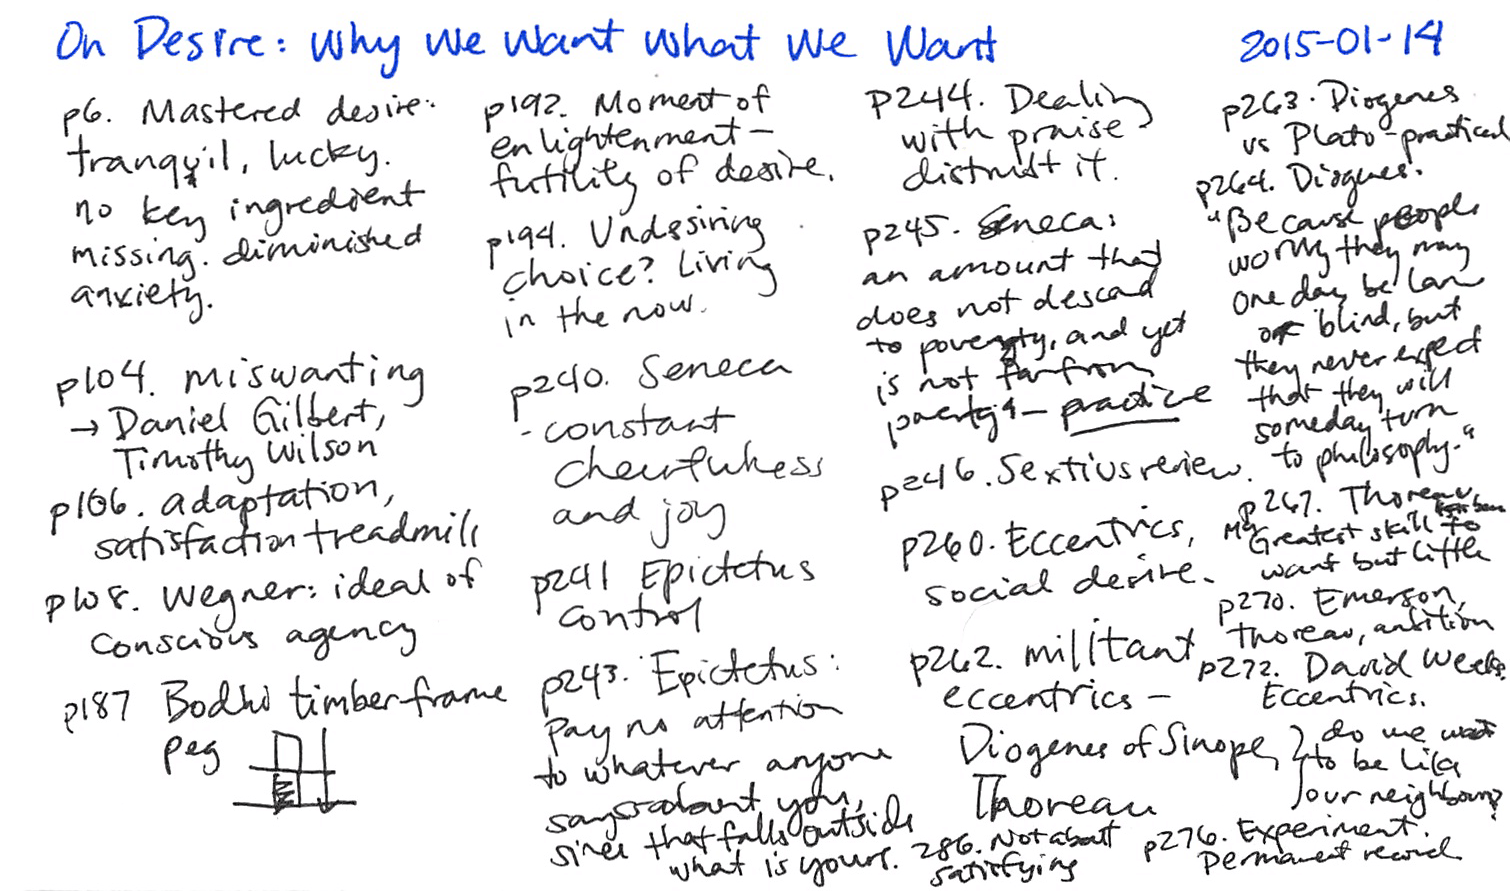 On Desire: Why We Want What We Want
2015-01-14
p6. Mastered desire:
tranquil, lucky.
no key ingredient
missing. diminished
anxiety.
p104. miswanting
→ Daniel Gilbert,
Timothy Wilson
p106. adaptation,
satisfaction treadmill
p108. Wegner: ideal of
conscious agency
p187 Bodhi timberframe
peg
p192. Moment of
enlightenment –
futility of desire.
p194. Undesiring
choice? Living
in the now.
p240. Seneca
- constant
cheerfulness
and joy
p241 Epictetus
control
p243. Epictetus:
Pay no attention
to whatever anyone
says about you,
since that falls outside
what is yours.
p244. Dealing
with praise
distrust it.
p245. Seneca:
an amount that
does not descend
to poverty, and yet
is not far from
poverty – practice
p246. Sextius review.
p260. Eccentrics,
social desire.
p262. militant
eccentrics –
Diogenes of Sinope
Thoreau
} do we want
to be like
our neighbours?
286. Not about
satisfying
p263. Diogenes
vs Plato - practical
p264. Diogenes.
"Because people
worry they may
one day be lame
or blind, but
they never expect
that they will
someday turn
to philosophy."
p267. Thoreau
My Greatest skill to
want but little
p270. Emerson,
Thoreau, ambition
p272. David Weeks,
Eccentrics.
p276. Experiment.
Permanent record